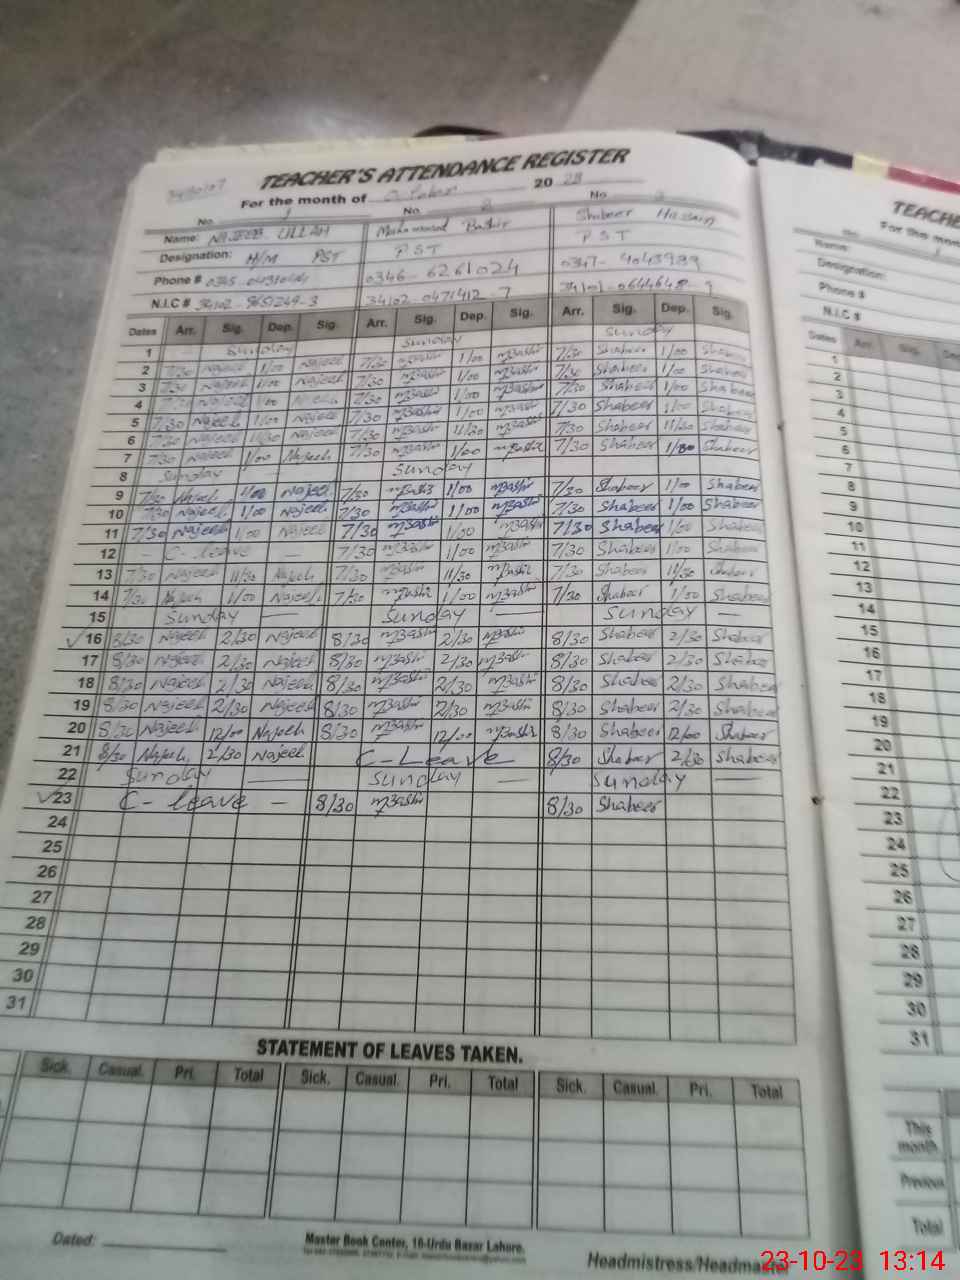 TEACHER'S ATTENDANCE REGISTER
For the month of October 2023
No. 1 No. 2 No. 3
Name: NAJEEB ULLAH Muhammad Bashir Shabeer Hassain
Designation: H/M PST PST PST
Phone # 0346-6261024 0347-4043989
N.I.C # 34102-9651249-3 34102-0471412-7
Dates Arr. Sig. Dep. Sig. Arr. Sig. Dep. Sig. Arr. Sig. Dep. Sig.
1 Sunday Sunday Sunday
2 7/30 Najeeb 1/00 Najeeb 7/30 MBashir 1/00 MBashir 7/30 Shabeer 1/00 Shabeer
3 7/30 Najeeb 1/00 Najeeb 7/30 MBashir 1/00 MBashir 7/30 Shabeer 1/00 Shabeer
4 7/30 Najeeb 1/00 Najeeb 7/30 MBashir 1/00 MBashir 7/30 Shabeer 1/00 Shabeer
5 7/30 Najeeb 1/00 Najeeb 7/30 MBashir 1/00 MBashir 7/30 Shabeer 1/00 Shabeer
6 7/30 Najeeb 11/30 Najeeb 7/30 MBashir 11/30 MBashir 7/30 Shabeer 11/30 Shabeer
7 7/30 Najeeb 1/00 Najeeb 7/30 MBashir 1/00 MBashir 7/30 Shabeer 1/00 Shabeer
8 Sunday — Sunday
9 7/30 Najeeb 1/00 Najeeb 7/30 MBashir 1/00 MBashir 7/30 Shabeer 1/00 Shabeer
10 7/30 Najeeb 1/00 Najeeb 7/30 MBashir 1/00 MBashir 7/30 Shabeer 1/00 Shabeer
11 7/30 Najeeb 1/00 Najeeb 7/30 MBashir 1/00 MBashir 7/30 Shabeer 1/00 Shabeer
12 — C-leave — 7/30 MBashir 1/00 MBashir 7/30 Shabeer 1/00 Shabeer
13 7/30 Najeeb 11/30 Najeeb 7/30 MBashir 11/30 MBashir 7/30 Shabeer 11/30 Shabeer
14 7/30 Najeeb 1/00 Najeeb 7/30 MBashir 1/00 MBashir 7/30 Shabeer 1/00 Shabeer
15 Sunday — Sunday — Sunday —
16 8/30 Najeeb 2/30 Najeeb 8/30 MBashir 2/30 MBashir 8/30 Shabeer 2/30 Shabeer
17 8/30 Najeeb 2/30 Najeeb 8/30 MBashir 2/30 MBashir 8/30 Shabeer 2/30 Shabeer
18 8/30 Najeeb 2/30 Najeeb 8/30 MBashir 2/30 MBashir 8/30 Shabeer 2/30 Shabeer
19 8/30 Najeeb 2/30 Najeeb 8/30 MBashir 2/30 MBashir 8/30 Shabeer 2/30 Shabeer
20 8/30 Najeeb 12/00 Najeeb 8/30 MBashir 12/00 MBashir 8/30 Shabeer 12/00 Shabeer
21 8/30 Najeeb 2/30 Najeeb C-Leave 8/30 Shabeer 2/30 Shabeer
22 Sunday — Sunday — Sunday —
23 C-leave — 8/30 MBashir 8/30 Shabeer
24
25
26
27
28
29
30
31
STATEMENT OF LEAVES TAKEN.
Sick. Casual. Pri. Total Sick. Casual. Pri. Total Sick. Casual. Pri. Total
Dated:
Master Book Center, 16-Urdu Bazar Lahore.
Headmistress/Headmaster
TEACHE
For the mon
Name:
Designation:
Phone #
N.I.C #
Dates Arr. Sig.
1
2
3
4
5
6
7
8
9
10
11
12
13
14
15
16
17
18
19
20
21
22
23
24
25
26
27
28
29
30
31
This month
Previous
Total
23-10-23 13:14